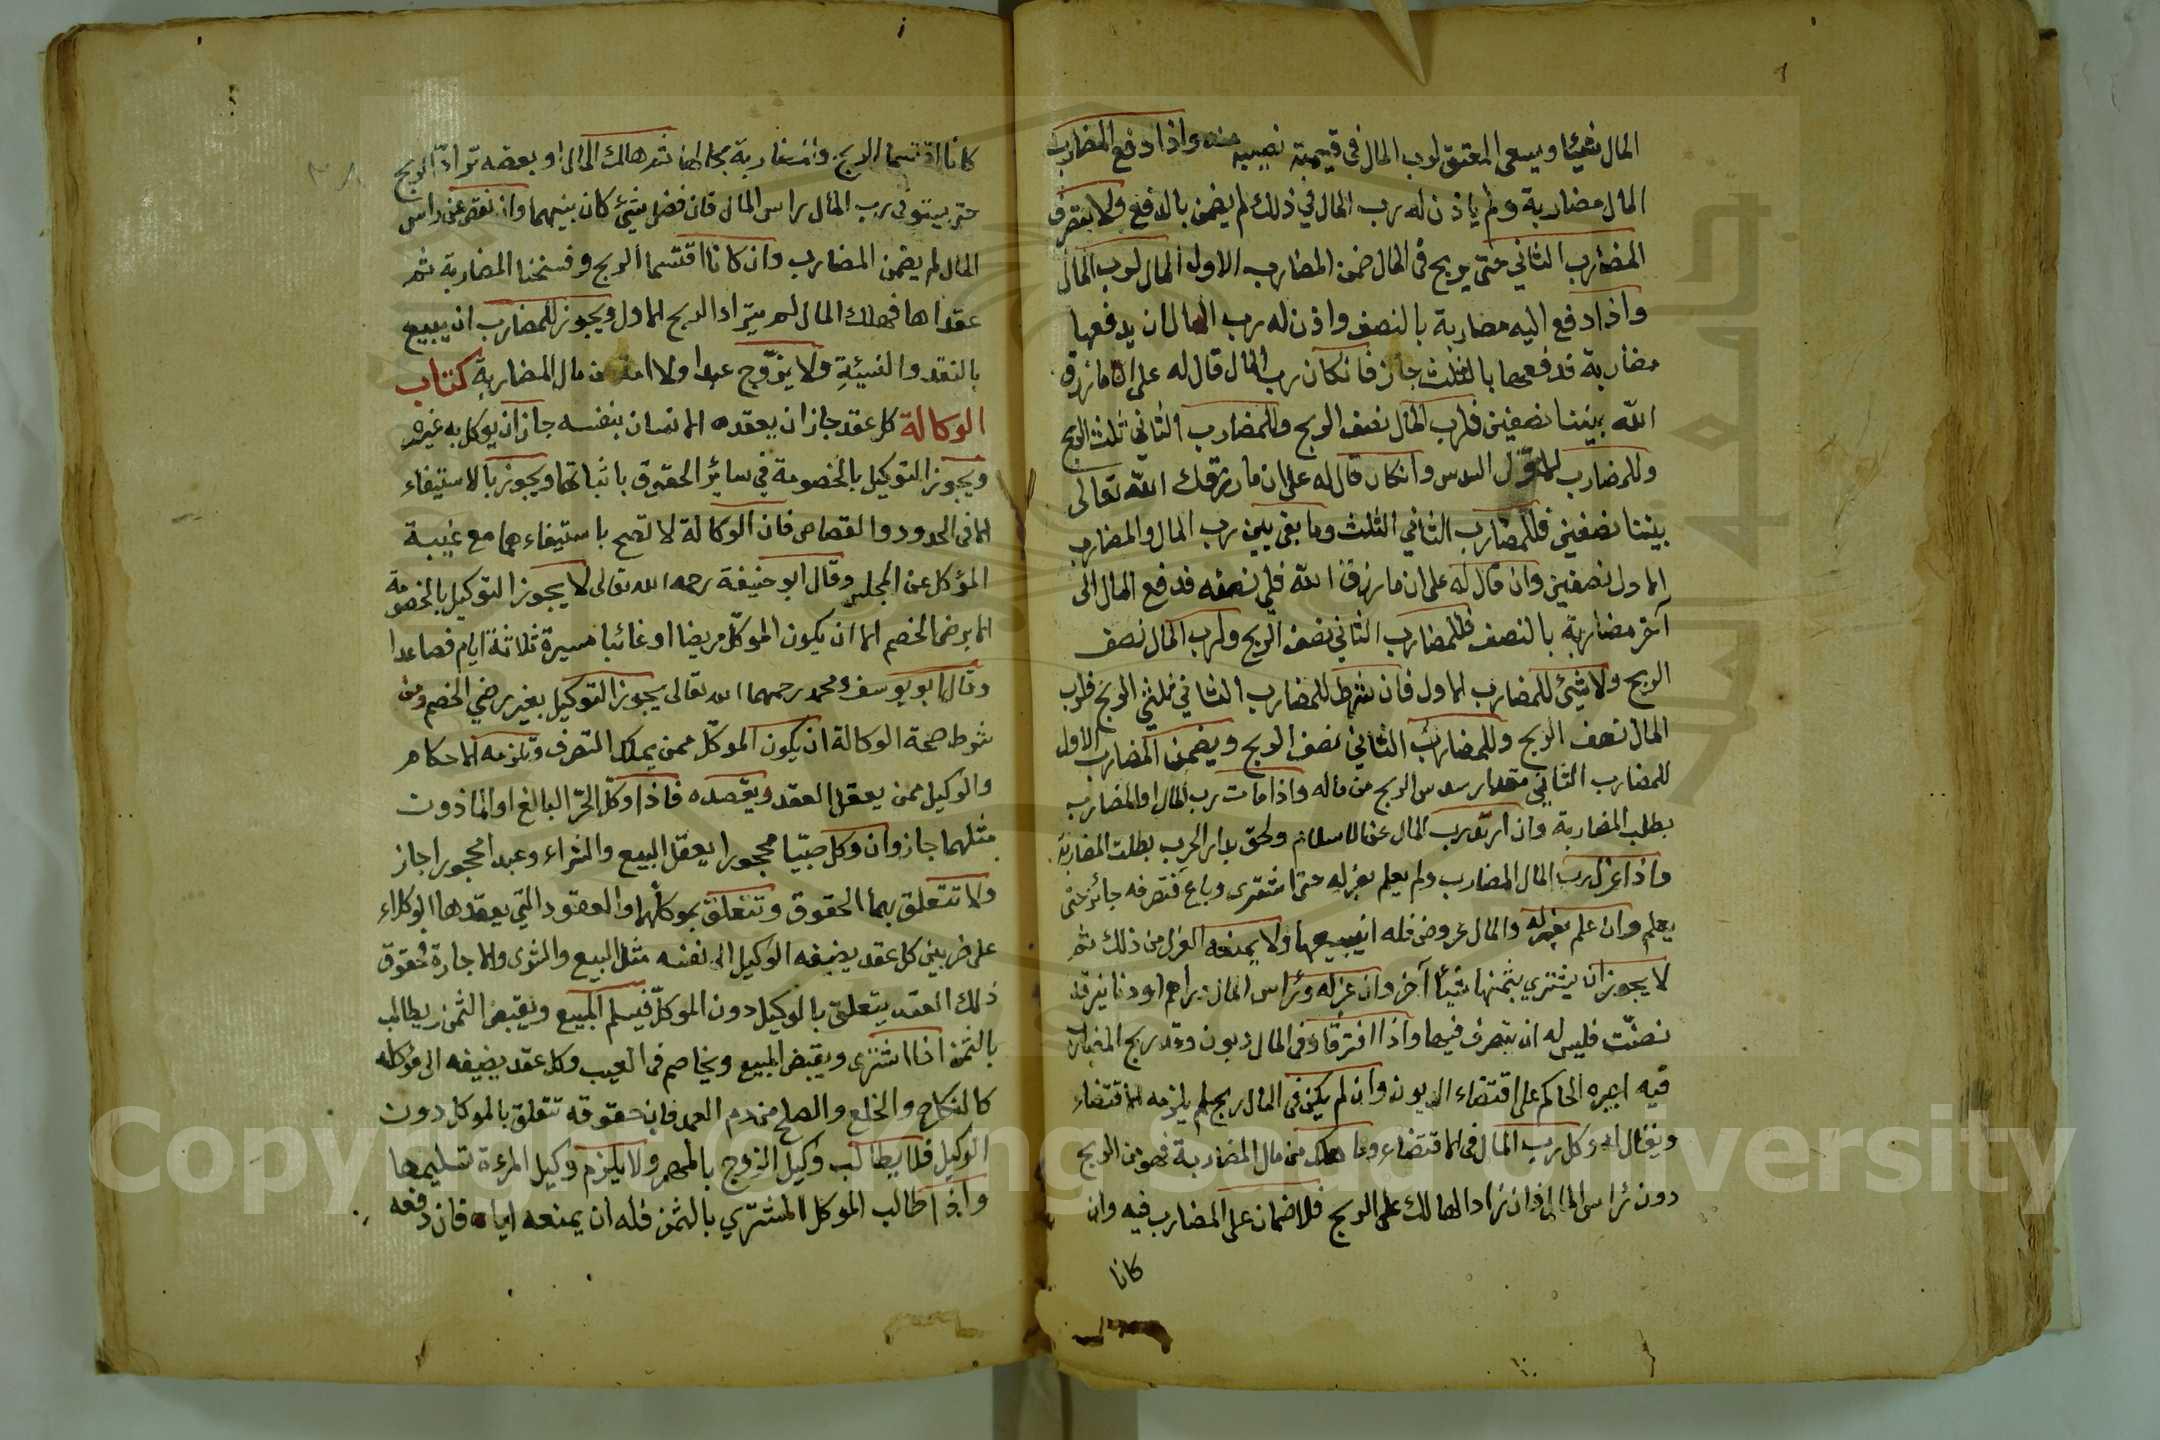 المال شيئا ويسعى المعتق لرب المال في قيمة نصيبه منه واذا دفع المضارب
المال مضاربة ولم ياذن له رب المال في ذلك لم يضمن بالدفع ولا بتصرف
المضارب الثاني حتى يربح في المال ضمن المضارب الاول المال لرب المال
واذا دفع اليه مضاربة بالنصف واذن له رب المال ان يدفعها
مضاربة فدفعها بالثلث جاز فانكان رب المال قال له على ان ما رزق
الله بيننا نصفين فلرب المال نصف الربح وللمضارب الثاني ثلث الربح
وللمضارب الاول السدس وانكان قال له على ان ما رزقك الله تعالى
بيننا نصفين فللمضارب الثاني الثلث وما بقي بين رب المال والمضارب
الاول نصفين وان قال له على ان ما رزق الله فلي نصفه فدفع المال الى
آخر مضاربة بالنصف فللمضارب الثاني نصف الربح ولرب المال نصف
الربح ولا شيئ للمضارب الاول فان شرط للمضارب الثاني ثلثي الربح فلرب
المال نصف الربح وللمضارب الثاني نصف الربح ويضمن المضارب الاول
للمضارب الثاني مقدار سدس الربح من ماله واذا مات رب المال او المضارب
بطلت المضاربة وان ارتد رب المال عن الاسلام ولحق بدار الحرب بطلت المضاربة
واذا عزل رب المال المضارب ولم يعلم بعزله حتى اشترى وباع فتصرفه جائز حتى
يعلم وان علم بعزله والمال عروض فله ان يبيعها ولا يمنعه العزل من ذلك ثم
لا يجوز ان يشتري بثمنها شيئا آخر وان عزله ورأس المال دراهم او دنانير قد
نضت فليس له ان يتصرف فيها واذا افترقا وفى المال ديون وقد ربح المضارب
فيه اجبره الحاكم على اقتضاء الديون وان لم يكن فى المال ربح لم يلزمه الاقتضاء
ويقال له وكل رب المال فى الاقتضاء وما هلك من مال المضاربة فهو من الربح
دون رأس المال فان زاد الهالك على الربح فلا ضمان على المضارب فيه وان
كانا
كانا اقتسما الربح والمضاربة بحالها ثم هلك المال او بعضه ترادا الربح
حتى يستوفي رب المال راس المال فان فضل شيئ كان بينهما وان نقص عن راس
المال لم يضمن المضارب وان كانا اقتسما الربح وفسخا المضاربة ثم
عقداها فهلك المال لم يترادا الربح الاول ويجوز للمضارب ان يبيع
بالنقد والنسيئة ولا يزوج عبدا ولا امة من مال المضاربة كتاب
الوكالة كل عقد جاز ان يعقده الانسان بنفسه جاز ان يوكل به غيره
ويجوز التوكيل بالخصومة في سائر الحقوق باثباتها ويجوز بالاستيفاء
الا فى الحدود والقصاص فان الوكالة لا تصح باستيفاءهما مع غيبة
الموكل عن المجلس وقال ابو حنيفة رحمه الله تعالى لا يجوز التوكيل بالخصومة
الا برضا الخصم الا ان يكون الموكل مريضا او غائبا مسيرة ثلاثة ايام فصاعدا
وقال ابو يوسف ومحمد رحمهما الله تعالى يجوز التوكيل بغير رضي الخصم ومن
شرط صحة الوكالة ان يكون الموكل ممن يملك التصرف وتلزمه الاحكام
والوكيل ممن يعقل العقد ويقصده فاذا وكل الحر البالغ او الماذون
مثلهما جاز وان وكل صبيا محجورا يعقل البيع والشراء وعبدا محجورا جاز
ولا تتعلق بهما الحقوق وتتعلق بموكلهما والعقود التي يعقدها الوكلاء
على ضربين كل عقد يضيفه الوكيل الى نفسه مثل البيع والشرى والاجارة فحقوق
ذلك العقد يتعلق بالوكيل دون الموكل فيسلم المبيع ويقبض الثمن ويطالب
بالثمن اذا اشترى ويقبض المبيع ويخاصم فى العيب وكل عقد يضيفه الى موكله
كالنكاح والخلع والصلح من دم العمد فان حقوقه تتعلق بالموكل دون
الوكيل فلا يطالب وكيل الزوج بالمهر ولا يلزم وكيل المرءة تسليمها
واذا طالب الموكل المشتري بالثمن فله ان يمنعه اياه فان دفعه
Copyright © King Saud University